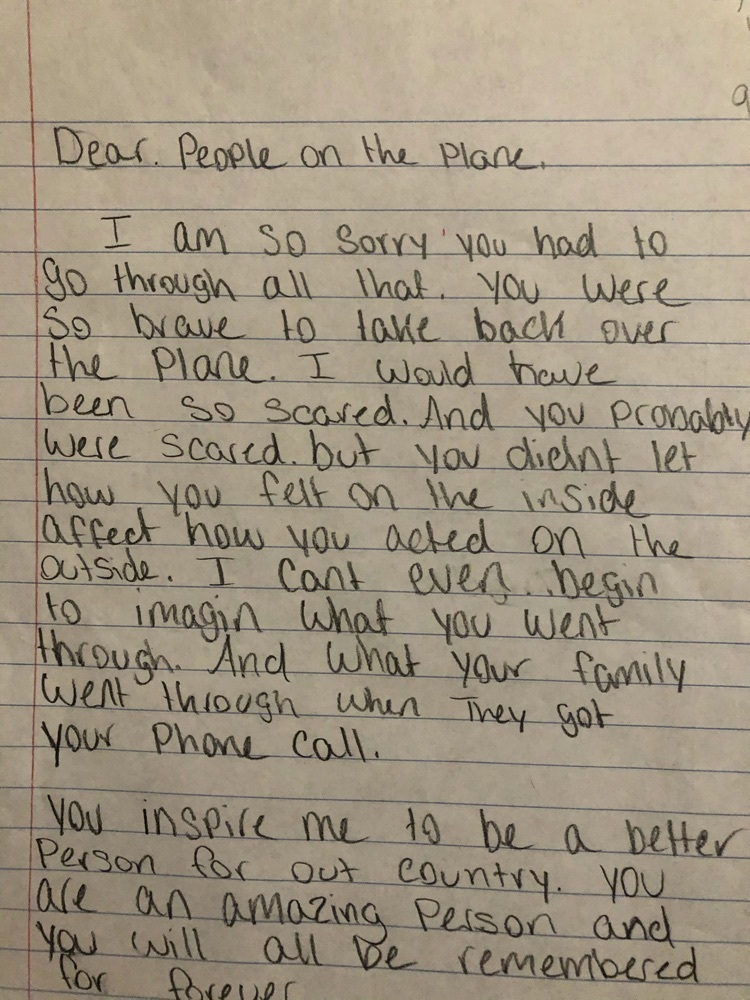 Dear. People on the Plane.
I am so sorry you had to
go through all that. You were
so brave to take back over
the Plane. I would have
been so scared. And you pronably
were scared. but you dident let
how you felt on the inside
affect how you acted on the
outside. I cant even begin
to imagin what you went
through. And what your family
went through when They got
your Phone call.
You inspire me to be a better
Person for out country. You
are an amazing Person and
you will all be remembered
for forever